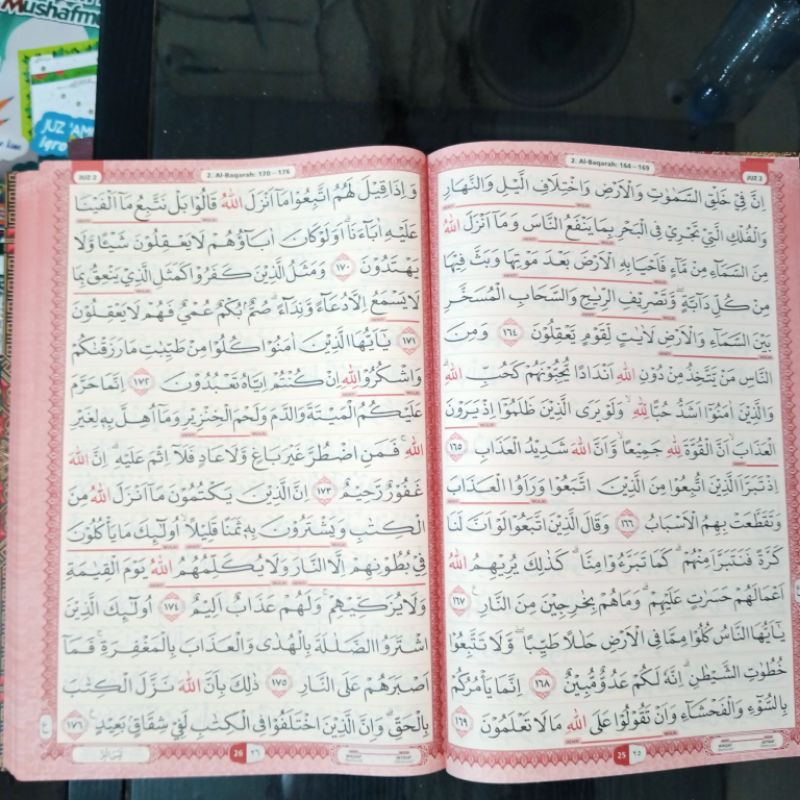 Mushafme
JUZ 'AM
Iqro
2. Al-Baqarah: 164 – 169
JUZ 2
اِنَّ فِيْ خَلْقِ السَّمٰوٰتِ وَالْاَرْضِ وَاخْتِلَافِ الَّيْلِ وَالنَّهَارِ
وَالْفُلْكِ الَّتِيْ تَجْرِيْ فِى الْبَحْرِ بِمَا يَنْفَعُ النَّاسَ وَمَآ اَنْزَلَ اللّٰهُ
مِنَ السَّمَاۤءِ مِنْ مَّاۤءٍ فَاَحْيَا بِهِ الْاَرْضَ بَعْدَ مَوْتِهَا وَبَثَّ فِيْهَا
مِنْ كُلِّ دَاۤبَّةٍ ۖ وَّتَصْرِيْفِ الرِّيٰحِ وَالسَّحَابِ الْمُسَخَّرِ
بَيْنَ السَّمَاۤءِ وَالْاَرْضِ لَاٰيٰتٍ لِّقَوْمٍ يَّعْقِلُوْنَ ١٦٤ وَمِنَ
النَّاسِ مَنْ يَّتَّخِذُ مِنْ دُوْنِ اللّٰهِ اَنْدَادًا يُّحِبُّوْنَهُمْ كَحُبِّ اللّٰهِ ۗ
وَالَّذِيْنَ اٰمَنُوْٓا اَشَدُّ حُبًّا لِّلّٰهِ ۙ وَلَوْ يَرَى الَّذِيْنَ ظَلَمُوْٓا اِذْ يَرَوْنَ
الْعَذَابَۙ اَنَّ الْقُوَّةَ لِلّٰهِ جَمِيْعًا ۙ وَّاَنَّ اللّٰهَ شَدِيْدُ الْعَذَابِ ١٦٥
اِذْ تَبَرَّاَ الَّذِيْنَ اتُّبِعُوْا مِنَ الَّذِيْنَ اتَّبَعُوْا وَرَاَوُا الْعَذَابَ
وَتَقَطَّعَتْ بِهِمُ الْاَسْبَابُ ١٦٦ وَقَالَ الَّذِيْنَ اتَّبَعُوْا لَوْ اَنَّ لَنَا
كَرَّةً فَنَتَبَرَّاَ مِنْهُمْ ۗ كَمَا تَبَرَّءُوْا مِنَّا ۗ كَذٰلِكَ يُرِيْهِمُ اللّٰهُ
اَعْمَالَهُمْ حَسَرٰتٍ عَلَيْهِمْ ۗ وَمَا هُمْ بِخٰرِجِيْنَ مِنَ النَّارِ ۚ ١٦٧
يٰٓاَيُّهَا النَّاسُ كُلُوْا مِمَّا فِى الْاَرْضِ حَلٰلًا طَيِّبًا ۖ وَّلَا تَتَّبِعُوْا
خُطُوٰتِ الشَّيْطٰنِۗ اِنَّهٗ لَكُمْ عَدُوٌّ مُّبِيْنٌ ١٦٨ اِنَّمَا يَأْمُرُكُمْ
بِالسُّوْۤءِ وَالْفَحْشَاۤءِ وَاَنْ تَقُوْلُوْا عَلَى اللّٰهِ مَا لَا تَعْلَمُوْنَ ١٦٩
25 ٢٥
2. Al-Baqarah: 170 – 176
JUZ 2
وَاِذَا قِيْلَ لَهُمُ اتَّبِعُوْا مَآ اَنْزَلَ اللّٰهُ قَالُوْا بَلْ نَتَّبِعُ مَآ اَلْفَيْنَا
عَلَيْهِ اٰبَاۤءَنَاۗ اَوَلَوْ كَانَ اٰبَاۤؤُهُمْ لَا يَعْقِلُوْنَ شَيْـًٔا وَّلَا
يَهْتَدُوْنَ ١٧٠ وَمَثَلُ الَّذِيْنَ كَفَرُوْا كَمَثَلِ الَّذِيْ يَنْعِقُ بِمَا
لَا يَسْمَعُ اِلَّا دُعَاۤءً وَّنِدَاۤءً ۗ صُمٌّۢ بُكْمٌ عُمْيٌ فَهُمْ لَا يَعْقِلُوْنَ
١٧١ يٰٓاَيُّهَا الَّذِيْنَ اٰمَنُوْا كُلُوْا مِنْ طَيِّبٰتِ مَا رَزَقْنٰكُمْ
وَاشْكُرُوْا لِلّٰهِ اِنْ كُنْتُمْ اِيَّاهُ تَعْبُدُوْنَ ١٧٢ اِنَّمَا حَرَّمَ
عَلَيْكُمُ الْمَيْتَةَ وَالدَّمَ وَلَحْمَ الْخِنْزِيْرِ وَمَآ اُهِلَّ بِهٖ لِغَيْرِ
اللّٰهِ ۚ فَمَنِ اضْطُرَّ غَيْرَ بَاغٍ وَّلَا عَادٍ فَلَآ اِثْمَ عَلَيْهِ ۗ اِنَّ اللّٰهَ
غَفُوْرٌ رَّحِيْمٌ ١٧٣ اِنَّ الَّذِيْنَ يَكْتُمُوْنَ مَآ اَنْزَلَ اللّٰهُ مِنَ
الْكِتٰبِ وَيَشْتَرُوْنَ بِهٖ ثَمَنًا قَلِيْلًاۙ اُولٰۤىِٕكَ مَا يَأْكُلُوْنَ
فِيْ بُطُوْنِهِمْ اِلَّا النَّارَ وَلَا يُكَلِّمُهُمُ اللّٰهُ يَوْمَ الْقِيٰمَةِ
وَلَا يُزَكِّيْهِمْ ۚ وَلَهُمْ عَذَابٌ اَلِيْمٌ ١٧٤ اُولٰۤىِٕكَ الَّذِيْنَ
اشْتَرَوُا الضَّلٰلَةَ بِالْهُدٰى وَالْعَذَابَ بِالْمَغْفِرَةِ ۚ فَمَآ
اَصْبَرَهُمْ عَلَى النَّارِ ١٧٥ ذٰلِكَ بِاَنَّ اللّٰهَ نَزَّلَ الْكِتٰبَ
بِالْحَقِّ ۗ وَاِنَّ الَّذِيْنَ اخْتَلَفُوْا فِى الْكِتٰبِ لَفِيْ شِقَاقٍۢ بَعِيْدٍ ۚ ١٧٦
26 ٢٦